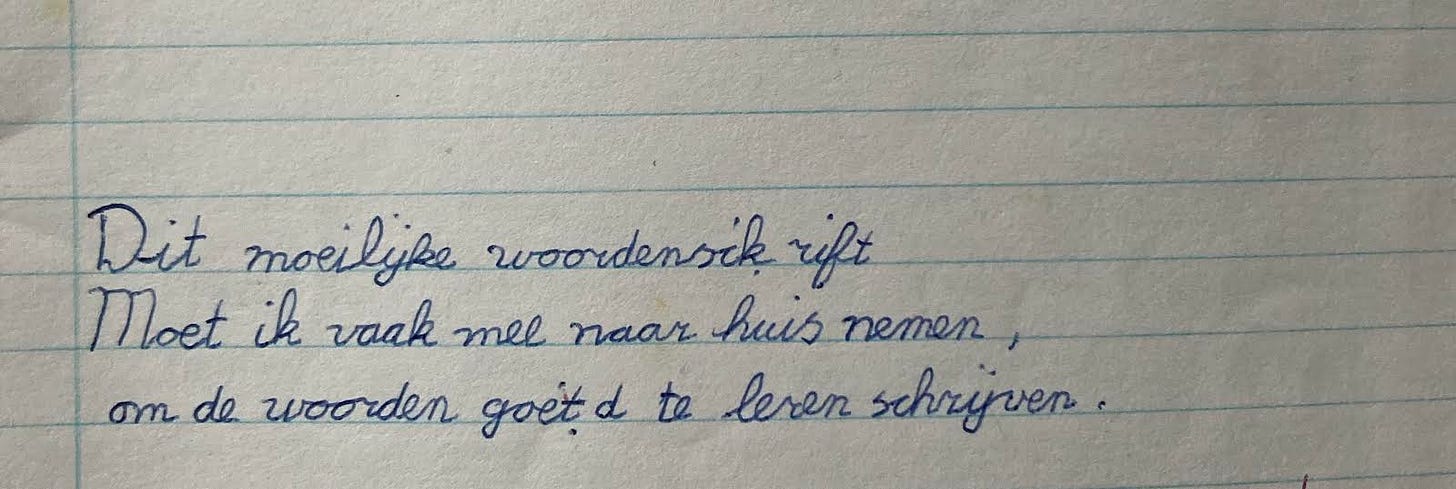 Dit moeilijke woordensik rift
Moet ik vaak mee naar huis nemen,
om de woorden goet d te leren schrijven.